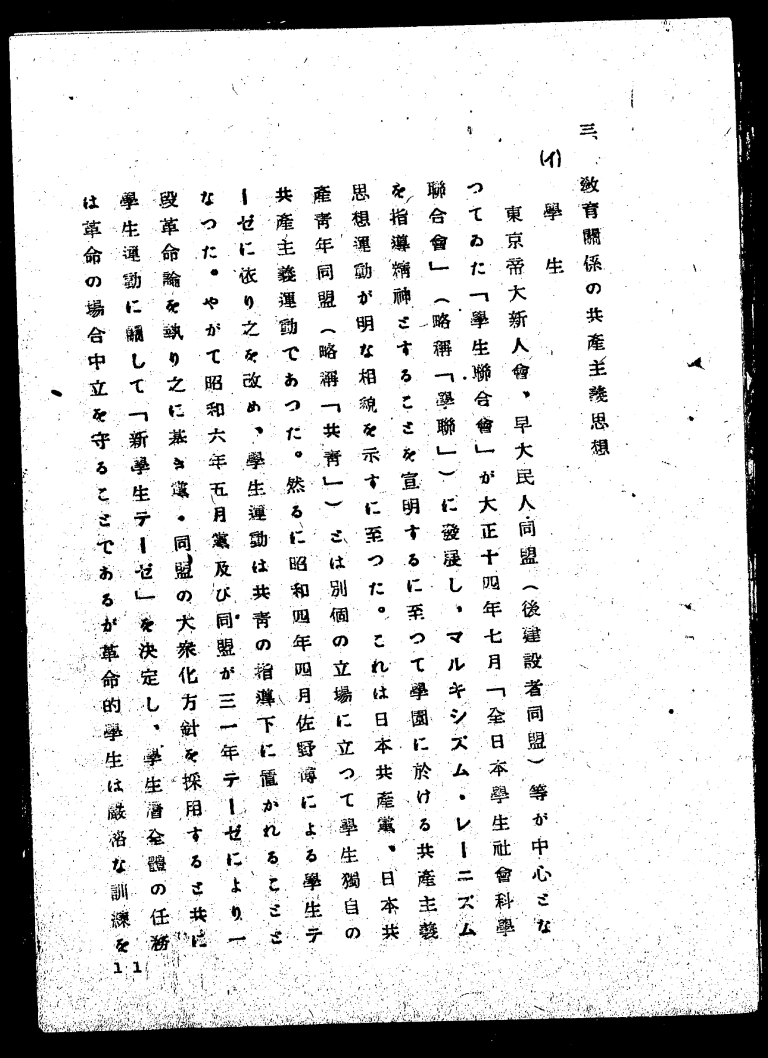 三、敎育關係の共產主義思想
(イ) 學生
東京帝大新人會、早大民人同盟（後建設者同盟）等が中心とな
つてゐた「學生聯合會」が大正十四年七月「全日本學生社會科學
聯合會」（略稱「學聯」）に發展し、マルキシズム・レーニズム
を指導精神とすることを宣明するに至つて學園に於ける共產主義
思想運動が明な相貌を示すに至つた。これは日本共產黨、日本共
產靑年同盟（略稱「共靑」）とは別個の立場に立つて學生獨自の
共產主義運動であつた。然るに昭和四年四月佐野博による學生テ
ーゼに依り之を改め、學生運動は共靑の指導下に置かれることと
なつた。やがて昭和六年五月黨及び同盟が三一年テーゼにより一
段革命論を執り之に基き黨・同盟の大衆化方針を採用すると共に
學生運動に關して「新學生テーゼ」を決定し、學生層全體の任務
は革命の場合中立を守ることであるが革命的學生は嚴格な訓練を
11